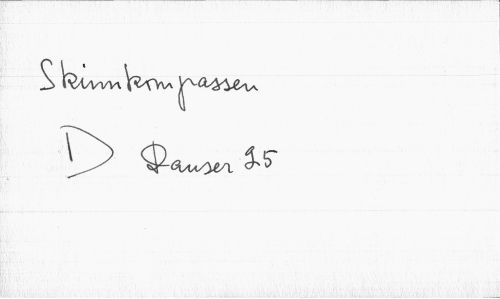 Skinnkompassen
D Danser 25